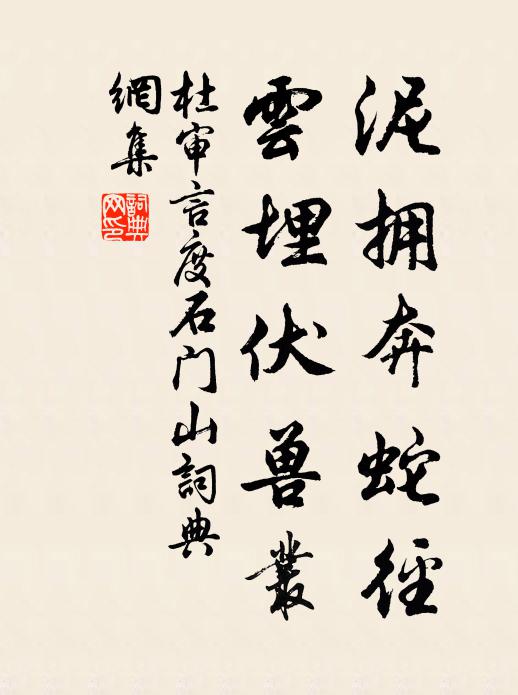 泥拥奔蛇径
雲埋伏兽叢
杜审言度石门山詞典
網集
詞典
网印